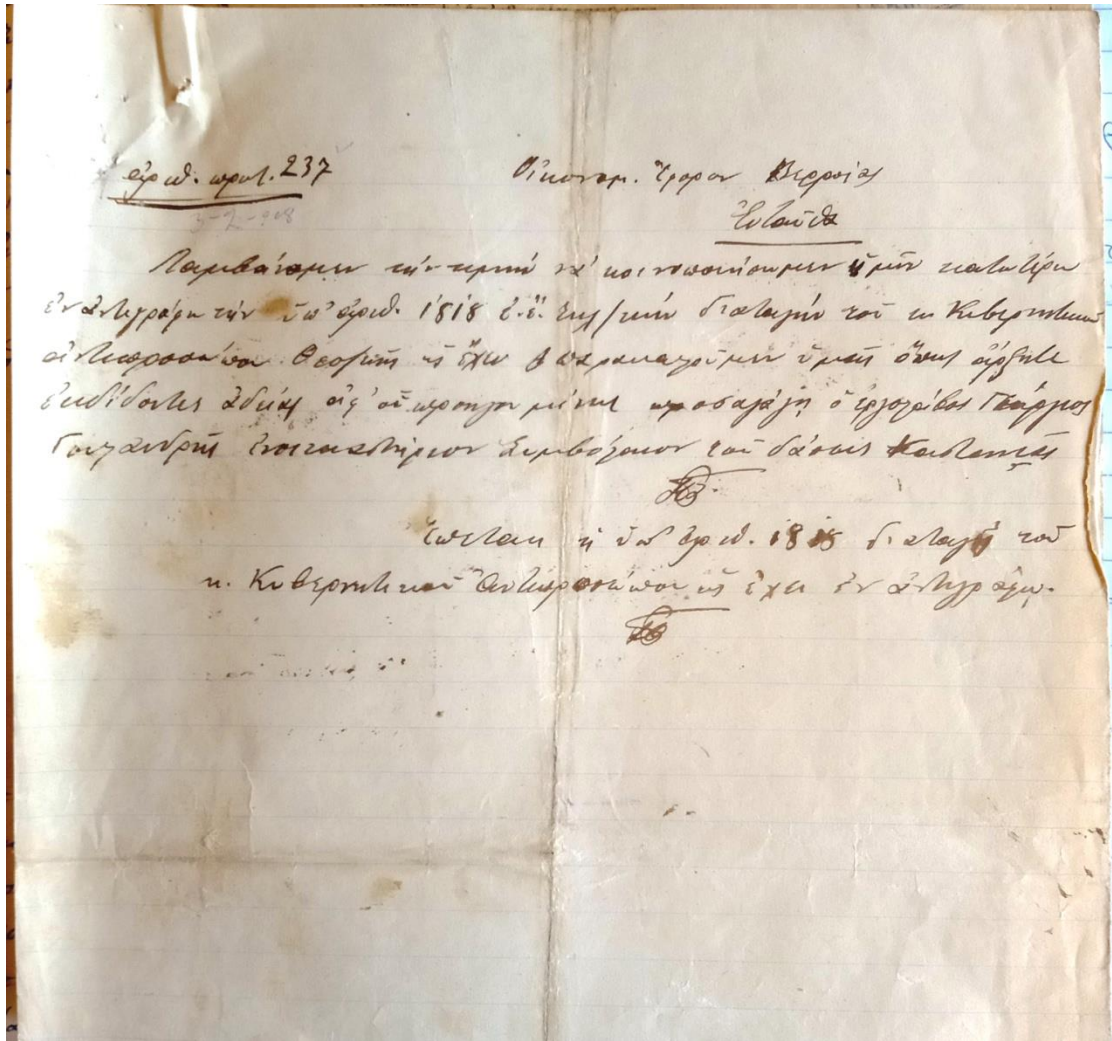 ἀριθ. πρωτ. 237
3-2-918
Οἰκονομ. Ἔφορον Βερροίας
Ἐνταῦθα
Λαμβάνομεν τὴν τιμὴν νὰ κοινοποιήσωμεν ὑμῖν κατωτέρω
ἐν ἀντιγράφῳ τὴν ὑπ' ἀριθ. 1818 ἐ. ἔ. διαταγὴν τοῦ κ. Κυβερνητικοῦ
ἀντιπροσώπου Θεσ/νίκης ὡς ἔχει παρακαλοῦμεν ὑμᾶς ὅπως ἄρξητε
ἐκδίδοντες ἀδείας ἀφ' οὗ προηγουμένως προσαγάγῃ ὁ ἐργολάβος Γεώργιος
Γουλανδρῆς ἐνοικιαστήριον Συμβόλαιον τοῦ δάσους Καστανιᾶς
Ἕπεται ἡ ὑπ' ἀριθ. 1818 διαταγὴ τοῦ
κ. Κυβερνητικοῦ Ἀντιπροσώπου ὡς ἔχει ἐν ἀντιγράφῳ.